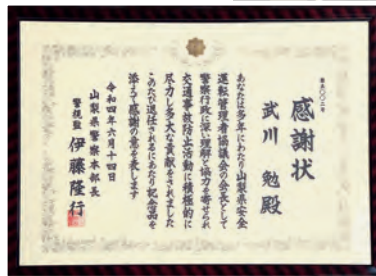 感謝状
武川 勉殿
あなたは多年にわたり山梨県安全
運転管理者協議会の会長として
警察行政に深い理解と協力を寄せられ
交通事故防止活動に積極的に
尽力し多大な貢献をされました
このたび退任されるにあたり記念品を
添えて感謝の意を表します
令和四年六月十四日
山梨県警察本部長
警視監 伊藤隆行